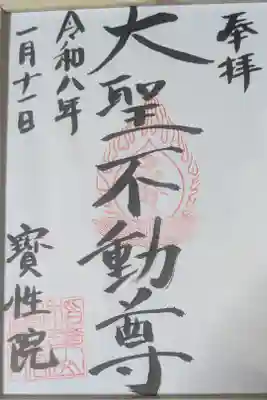 奉拝
大聖不動尊
寶性院
令和八年
一月十一日